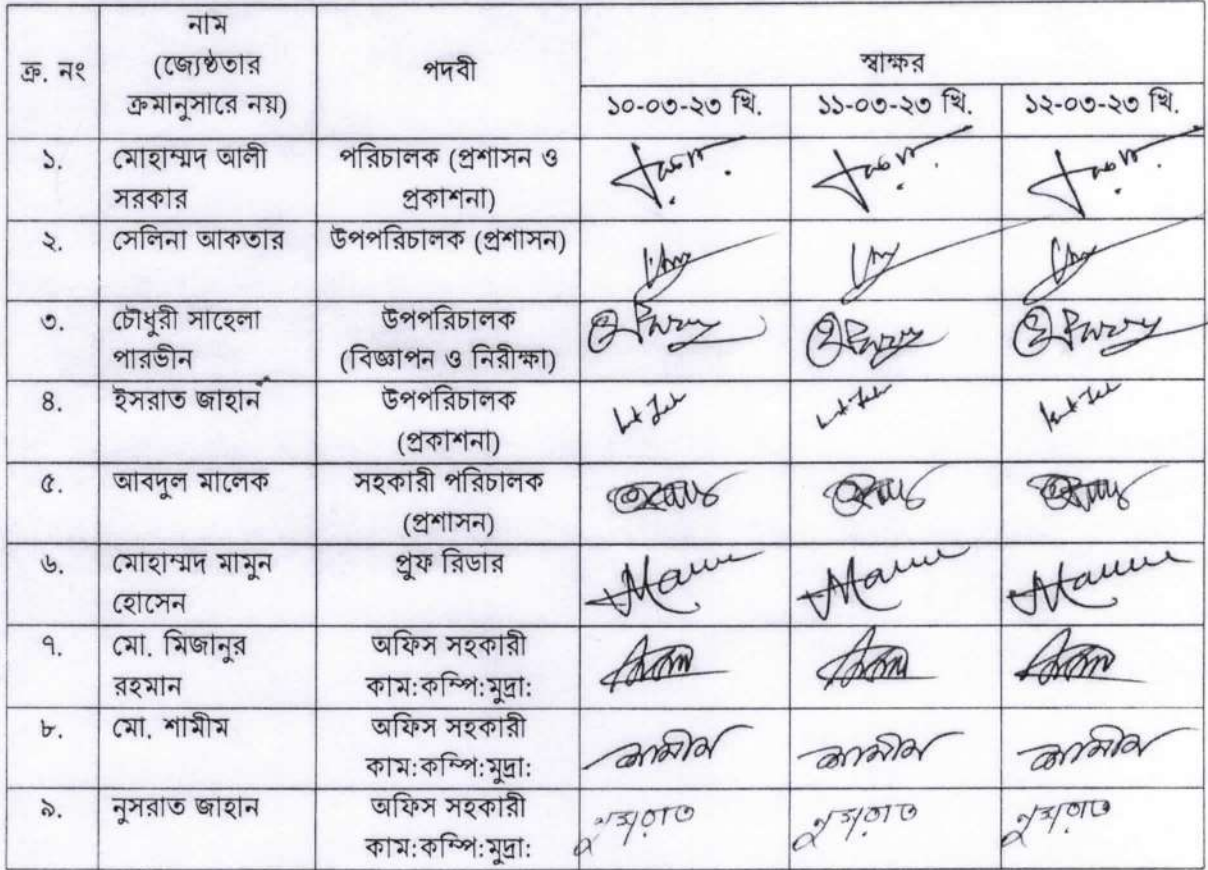 ক্র. নং
নাম
(জ্যেষ্ঠতার
ক্রমানুসারে নয়)
পদবী
স্বাক্ষর
১০-০৩-২৩ খি.
১১-০৩-২৩ খি.
১২-০৩-২৩ খি.
১.
মোহাম্মদ আলী
সরকার
পরিচালক (প্রশাসন ও
প্রকাশনা)
২.
সেলিনা আকতার
উপপরিচালক (প্রশাসন)
৩.
চৌধুরী সাহেলা
পারভীন
উপপরিচালক
(বিজ্ঞাপন ও নিরীক্ষা)
৪.
ইসরাত জাহান
উপপরিচালক
(প্রকাশনা)
৫.
আবদুল মালেক
সহকারী পরিচালক
(প্রশাসন)
৬.
মোহাম্মদ মামুন
হোসেন
প্রুফ রিডার
৭.
মো. মিজানুর
রহমান
অফিস সহকারী
কাম:কম্পি:মুদ্রা:
৮.
মো. শামীম
অফিস সহকারী
কাম:কম্পি:মুদ্রা:
শামীম
শামীম
শামীম
৯.
নুসরাত জাহান
অফিস সহকারী
কাম:কম্পি:মুদ্রা:
নুসরাত
নুসরাত
নুসরাত